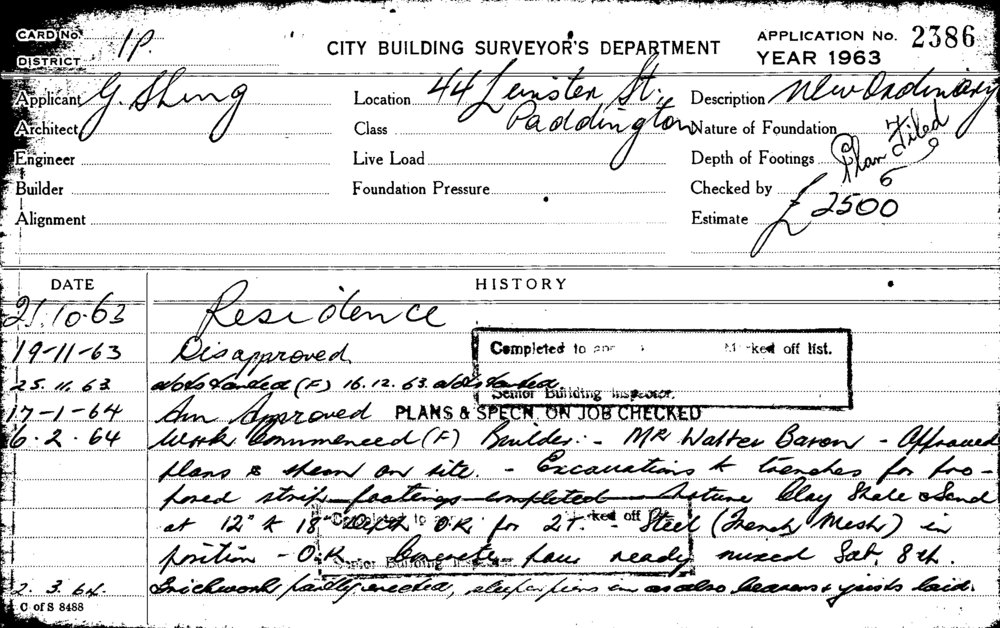 CARD No. 1P.
DISTRICT
CITY BUILDING SURVEYOR'S DEPARTMENT
APPLICATION No. 2386
YEAR 1963
Applicant G. Shing
Location 44 Leinster St.,
Paddington
Description New Ordinary
Architect
Class
Nature of Foundation
Engineer
Live Load
Depth of Footings
Plan Filed
6
Builder
Foundation Pressure
Checked by
Alignment
Estimate £2500
DATE
HISTORY
21.10.63 Residence
19-11-63 Disapproved
Completed to Marked off list.
Senior Building Inspector.
25.11.63 (F) 16.12.63
17-1-64 Am Approved PLANS & SPECN. ON JOB CHECKED
6.2.64 Work Commenced (F) Builder:- MR Walter Baron - Approved
plans & specn on site. - Excavations to trenches for pro-
posed strip footings completed Nature Clay Shale & Sand
at 12" to 18" Depth O.K. for 2F. - Steel (Trench Mesh) in
position - O.K. Concrete pour ready mixed Sat. 8th.
Completed to Marked off list.
Senior Building Inspector.
2.3.64. Brickwork partly erected, sleeper piers in as also bearers & joists laid.
C of S 8488